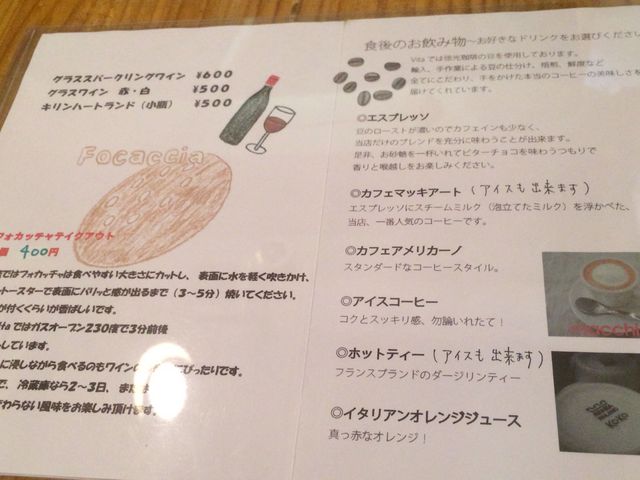 グラススパークリングワイン ¥600
グラスワイン 赤・白 ¥500
キリンハートランド（小瓶） ¥500
Focaccia
フォカッチャテイクアウト
個 400円
ではフォカッチャは食べやすい大きさにカットし、表面に水を軽く吹きかけ、
トースターで表面にパリッと感が出るまで（3～5分）焼いてください。
が付くくらいが香ばしいです。
Vitaではガスオーブン230度で3分前後
しています。
に浸しながら食べるのもワインの ぴったりです。
で、冷蔵庫なら2～3日、
わらない風味をお楽しみ頂けます。
食後のお飲み物～お好きなドリンクをお選びください
Vitaでは徳光珈琲の豆を使用しております。
輸入、手作業による豆の仕分け、焙煎、鮮度など
全てにこだわり、手をかけた本当のコーヒーの美味しさを
届けてくれています。
◎エスプレッソ
豆のローストが濃いのでカフェインも少なく、
当店だけのブレンドを充分に味わうことが出来ます。
是非、お砂糖を一杯いれてビターチョコを味わうつもりで
香りと喉越しをお楽しみください。
◎カフェマッキアート（アイスも出来ます）
エスプレッソにスチームミルク（泡立てたミルク）を浮かべた、
当店、一番人気のコーヒーです。
◎カフェアメリカーノ
スタンダードなコーヒースタイル。
◎アイスコーヒー
コクとスッキリ感、勿論いれたて！
macchi
◎ホットティー（アイスも出来ます）
フランスブランドのダージリンティー
◎イタリアンオレンジジュース
真っ赤なオレンジ！
KOKO